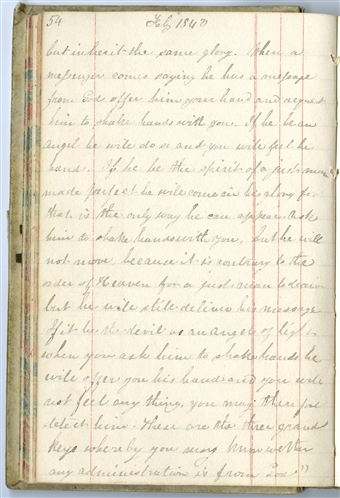 54 Feb 1843
but inherit the same glory. When a
messenger comes saying he has a message
from God offer him your hand and request
him to shake hands with you. If he be an
angel he will do so and you will feel his
hand. If he be the spirit of a just man
made perfect he will come in his glory for
that is the only way he can appear. Ask
him to shake hands with you, but he will
not move, because it is contrary to the
order of Heaven for a just man to deceive
but he will still deliver his message
If it be the devil as an angel of light
when you ask him to shake hands he
will offer you his hand and you will
not feel any thing, you may then
detect him. These are the three grand
Keys whereby you may know wether
any administration is from God"